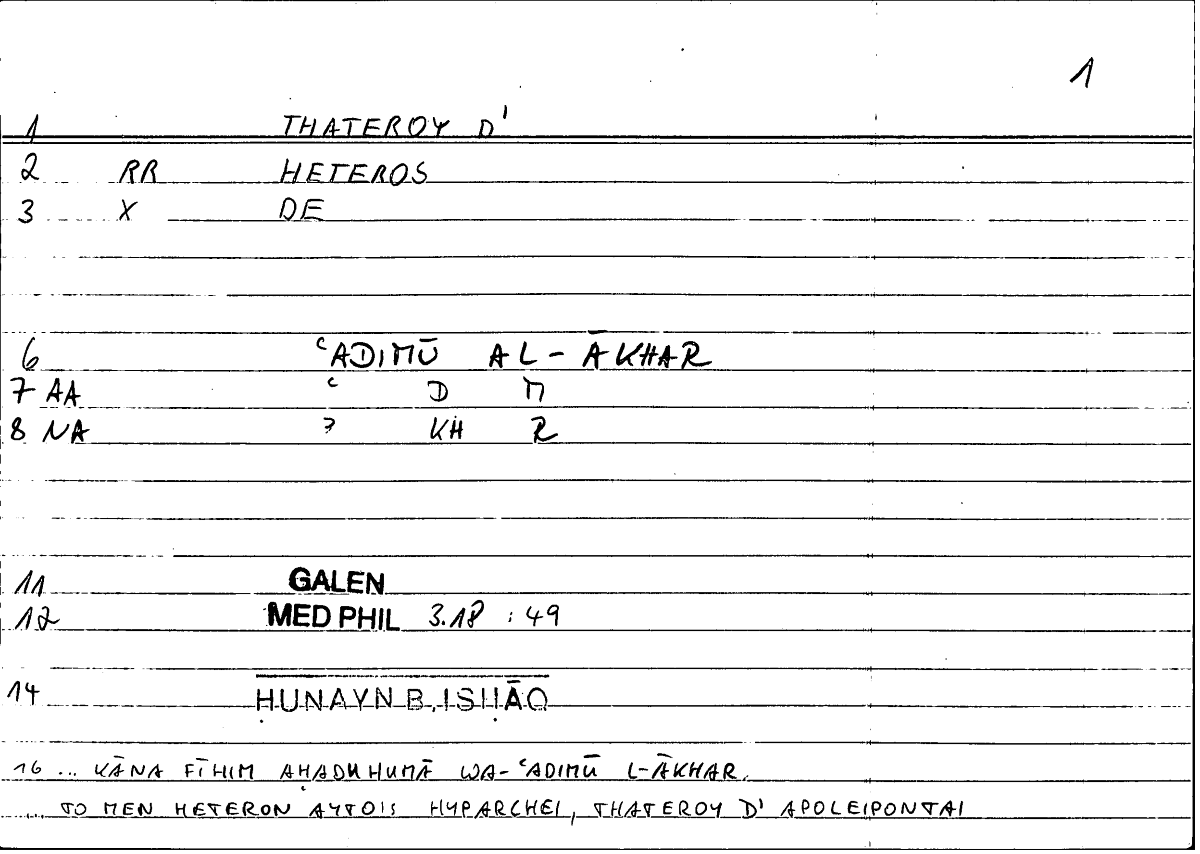 1
1 THATEROY D'
2 RR HETEROS
3 X DE
6 ʿADIMŪ AL-ĀKHAR
7 AA ʿ D M
8 NA ʾ KH R
11 GALEN
12 MED PHIL 3.18 : 49
14 ḤUNAYN B. ISḤĀQ
16 ... KĀNA FĪHIM AḤADUHUMĀ WA-ʿADIMŪ L-ĀKHAR.
... TO MEN HETERON AYTOIS HYPARCHEI, THATEROY D' APOLEIPONTAI